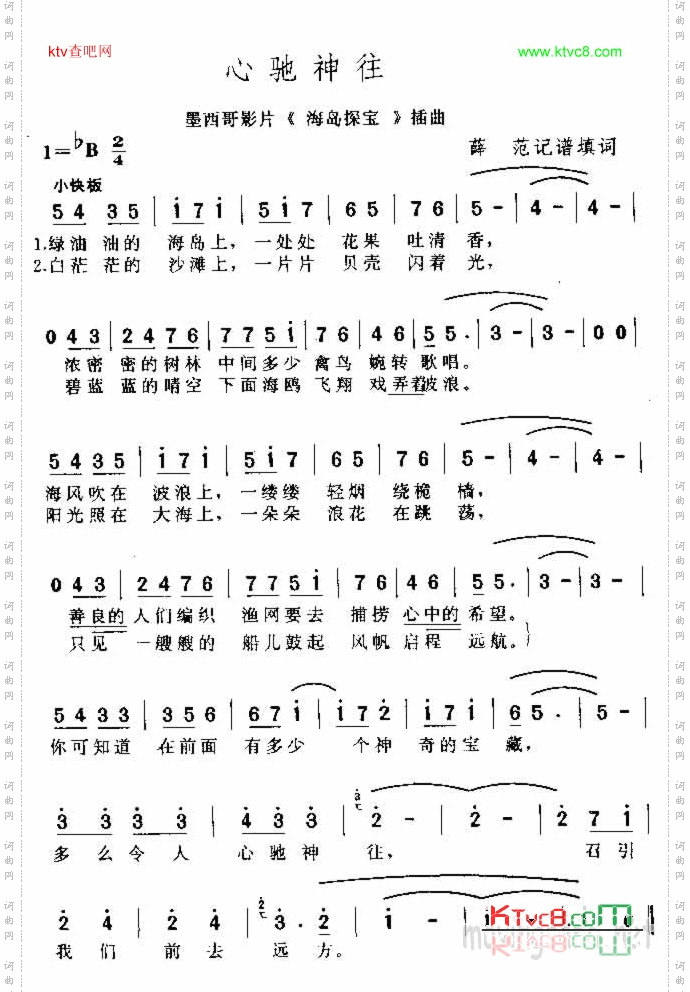 ktv查吧网
www.ktvc8.com
心驰神往
墨西哥影片《海岛探宝》插曲
1=♭B 2/4
薛 范记谱填词
小快板
54 35 | i7i | 5i7 | 65 | 76 | 5- | 4- | 4- |
1.绿油 油的 海岛上,一处处 花果 吐清 香,
2.白茫 茫的 沙滩上,一片片 贝壳 闪着 光,
043 | 2476 | 775i | 76 | 46 | 55. | 3- | 3- | 00
浓密 密的树林 中间多少 禽鸟 婉转 歌唱。
碧蓝 蓝的晴空 下面海鸥 飞翔 戏弄着波浪。
5435 | i7i | 5i7 | 65 | 76 | 5- | 4- | 4- |
海风吹在 波浪上,一缕缕 轻烟 绕桅 樯,
阳光照在 大海上,一朵朵 浪花 在跳 荡,
043 | 2476 | 775i | 76 | 46 | 55. | 3- | 3- |
善良的 人们编织 渔网要去 捕捞 心中的 希望。
只见 一艘艘的 船儿鼓起 风帆 启程 远航。
5433 | 356 | 67i | i72 | i7i | 65. | 5- |
你可知道 在前面 有多少 个神 奇的宝 藏,
3 3 3 3 | 4 3 3 | 3 2 - | 2 - | 2 7 i |
多么令人 心驰神 往, 召引
2 4 | 2 4 | 2 3. 2 | i - | i
我们 前去 远方。
KTvc8.com
词曲网